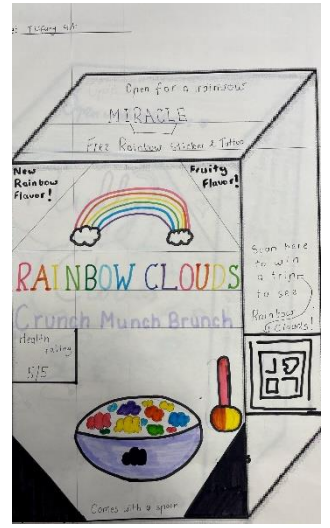 Tiffany 4A
Open for a rainbow
MIRACLE
Free Rainbow Sticker & Tattoo
New
Rainbow
Flavor!
Fruity
Flavor!
RAINBOW CLOUDS
Crunch Munch Brunch
Health
rating
5/5
Scan here
to win
a trip
to see
Rainbow
Clouds!
Comes with a spoon